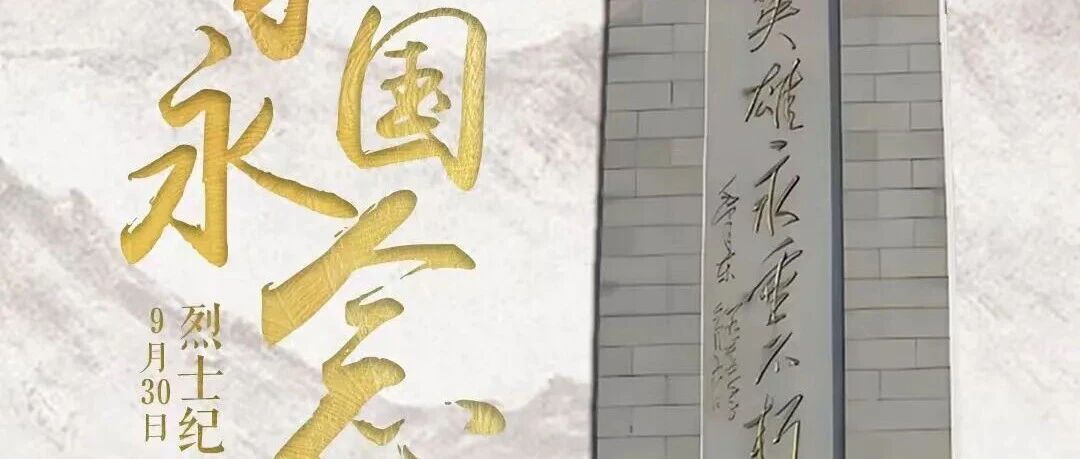 国念
永
烈士纪
9月30日
英雄永垂不朽